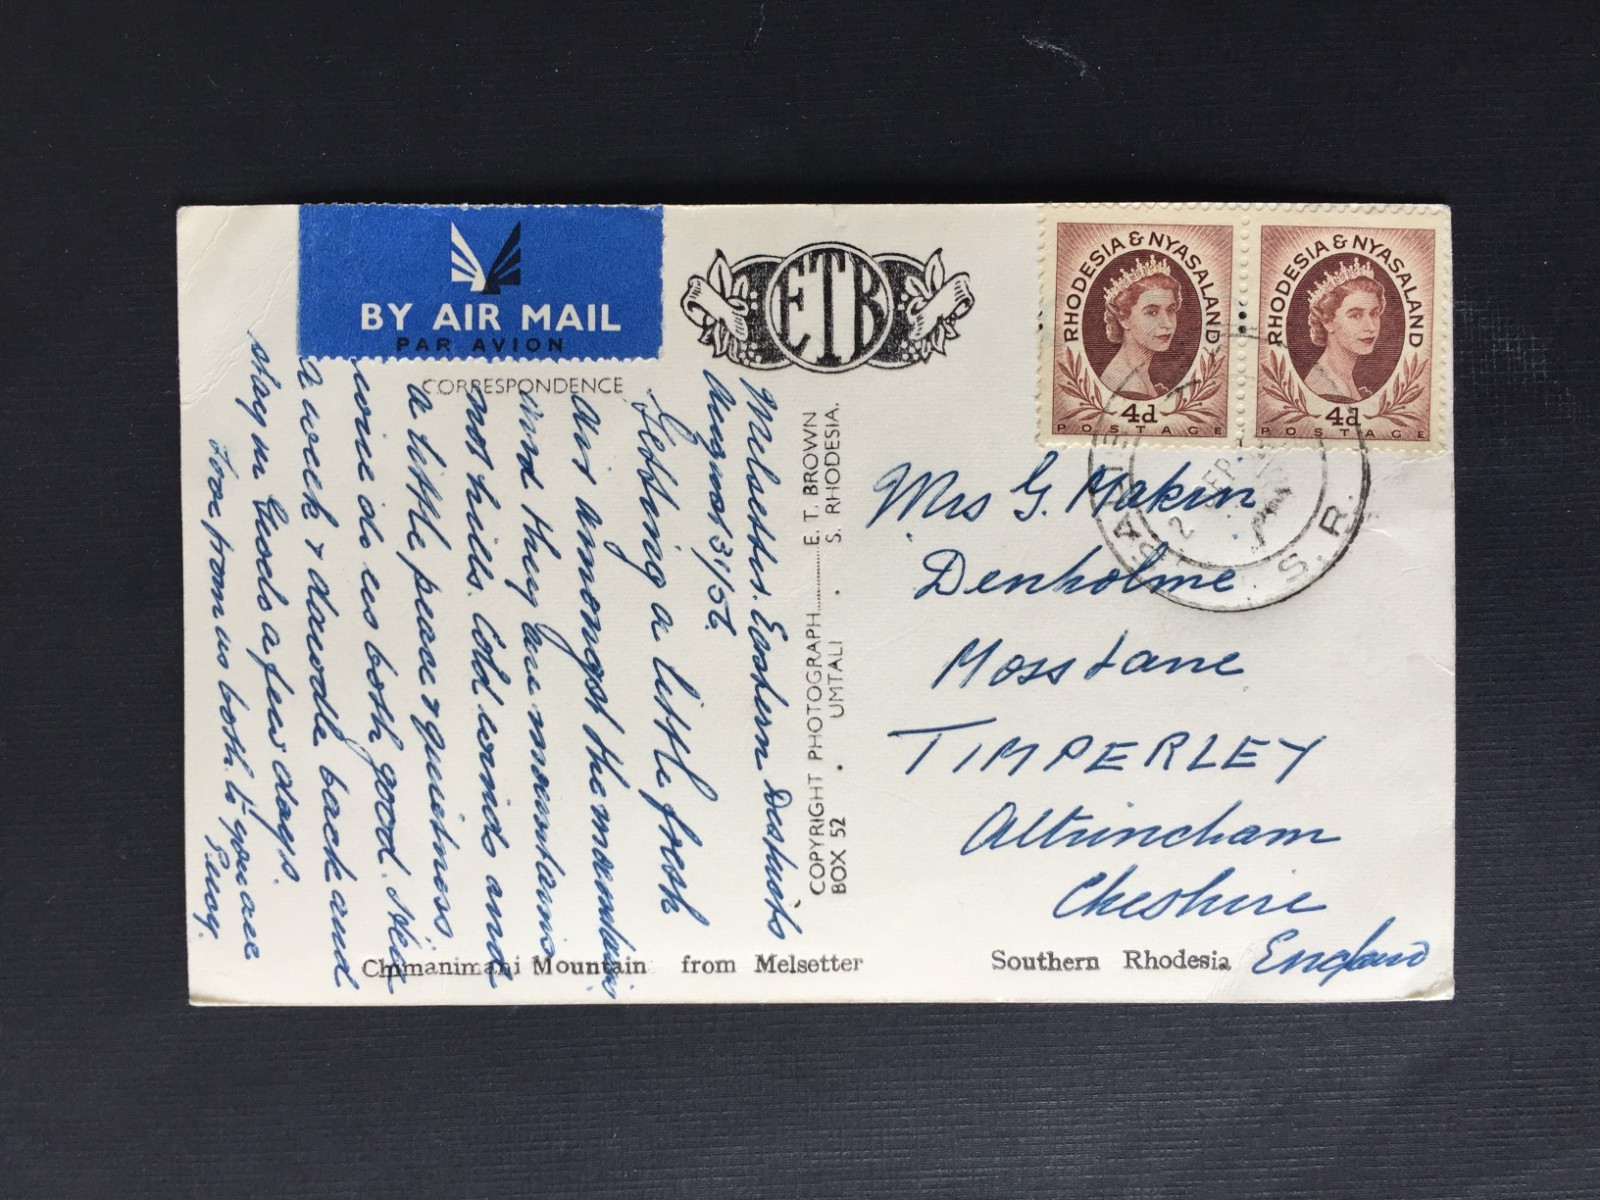 BY AIR MAIL
PAR AVION
CORRESPONDENCE
ETB
RHODESIA & NYASALAND
4d
POSTAGE
RHODESIA & NYASALAND
4d
POSTAGE
2 SEP
S.R.
Melsetter. Eastern Districts
August 31/56.
Getting a little fresh
air amongst the mountains
And they are mountains
not hills. Cold winds and
a little peace & quietness
will do us both good. Its
a week &
back and
stay in
a few days.
Love from us both. to you are
COPYRIGHT PHOTOGRAPH E. T. BROWN
BOX 52 . UMTALI . S. RHODESIA.
Mrs G. Makin
Denholme
Moss Lane
TIMPERLEY
Altrincham
Cheshire
England
Chimanimani Mountain from Melsetter Southern Rhodesia